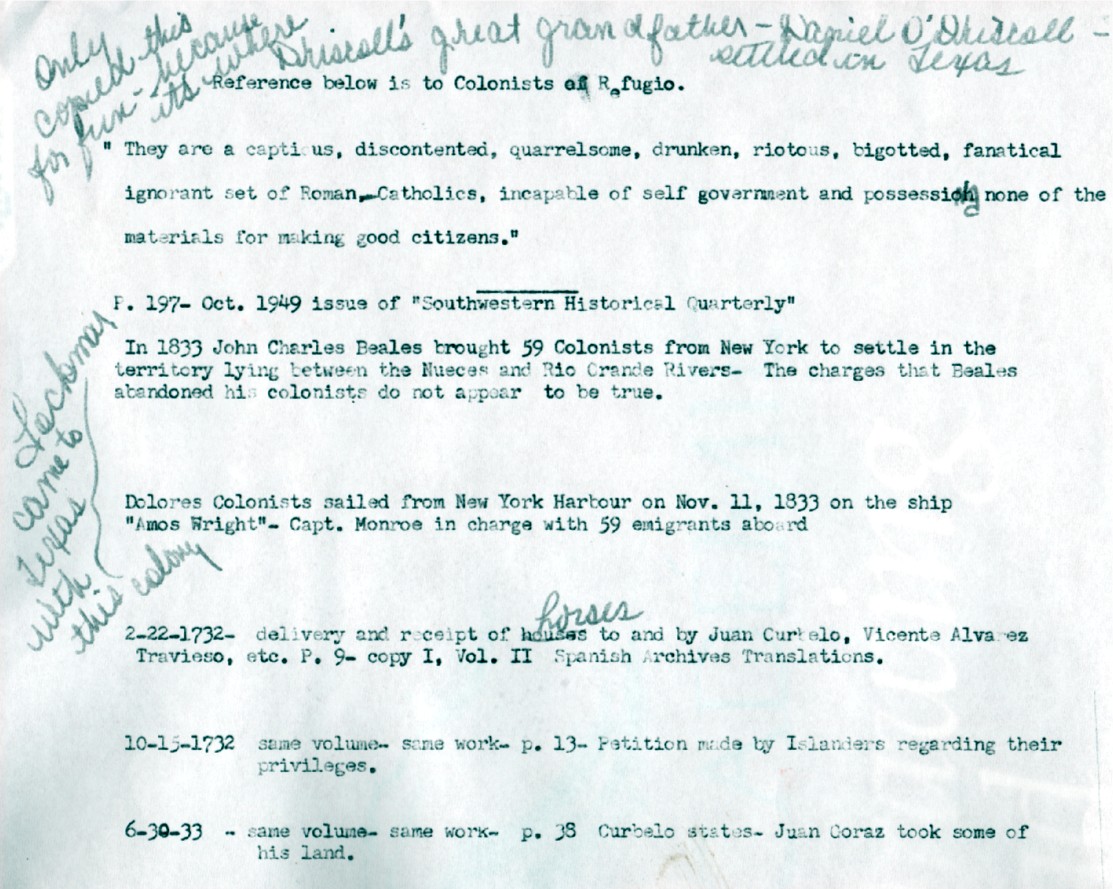 Only
copied this
for fun - because
its where
Driscoll's great grandfather - Daniel O'Driscoll -
settled in Texas
Reference below is to Colonists of Refugio.
" They are a captious, discontented, quarrelsome, drunken, riotous, bigotted, fanatical
ignorant set of Roman Catholics, incapable of self government and possessing none of the
materials for making good citizens."
P. 197- Oct. 1949 issue of "Southwestern Historical Quarterly"
In 1833 John Charles Beales brought 59 Colonists from New York to settle in the
territory lying between the Nueces and Rio Grande Rivers- The charges that Beales
abandoned his colonists do not appear to be true.
came to
Texas
with
this colony
Dolores Colonists sailed from New York Harbour on Nov. 11, 1833 on the ship
"Amos Wright"- Capt. Monroe in charge with 59 emigrants aboard
horses
2-22-1732- delivery and receipt of houses to and by Juan Curbelo, Vicente Alvarez
Travieso, etc. P. 9- copy I, Vol. II Spanish Archives Translations.
10-15-1732 same volume- same work- p. 13- Petition made by Islanders regarding their
privileges.
6-30-33 - same volume- same work- p. 38 Curbelo states- Juan Coraz took some of
his land.